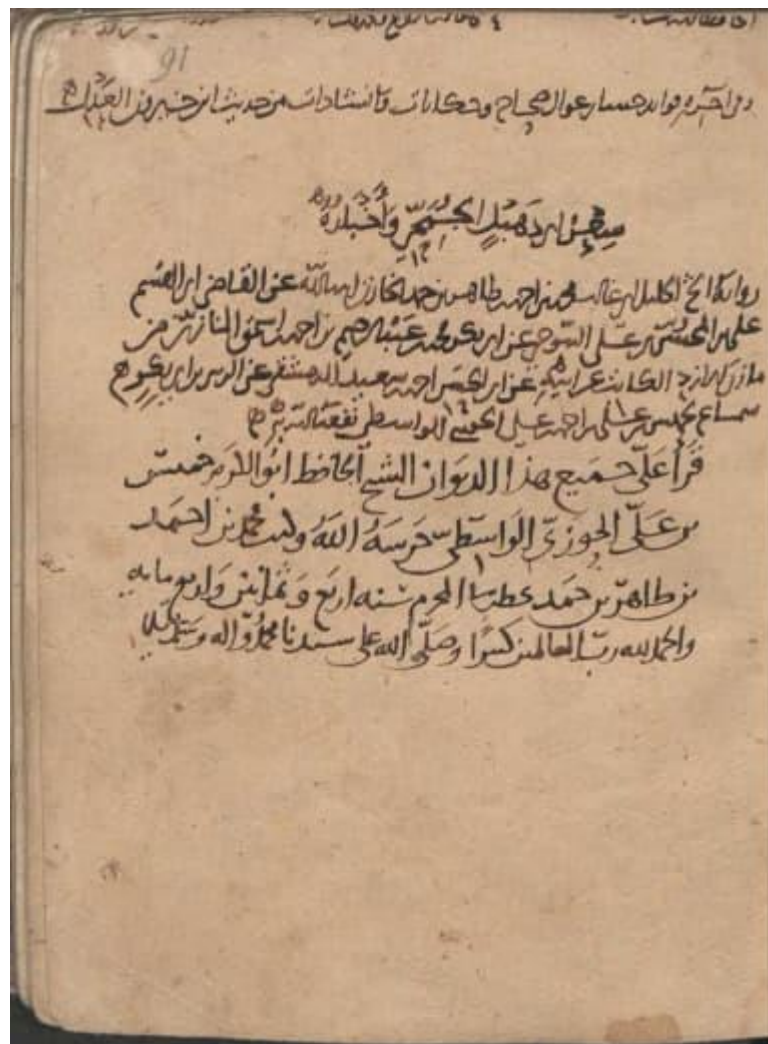 91
وفي آخره فوائد حسان عوال صحاح وحكايات وانشادات من حديث ابن خيرون العدل
شعر ابي دهبل الجمحي وأخباره
رواية الشيخ الجليل ابي غالب محمد بن احمد بن طاهر بن حمد الخازن ايده الله عن القاضي ابي القسم
علي بن المحسن بن علي التنوخي عن ابي بكر محمد بن عبد الرحيم بن احمد بن اسحق المازني من
مازن الازد الكاتب عن ابيه عن ابي الحسن احمد بن سعيد الدمشقي عن الزبير بن ابي بكر
سماع لخميس بن علي بن احمد بن علي الواسطي نفعه الله به
قرأ علي جميع هذا الديوان الشيخ الحافظ ابو الكرم خميس
بن علي الحوزي الواسطي حرسه الله وكتب محمد بن احمد
بن طاهر بن حمد بخطه المحرم سنه اربع وثمانين واربع مايه
والحمد لله رب العالمين كثيرا وصلى الله على سيدنا محمد واله وسلم